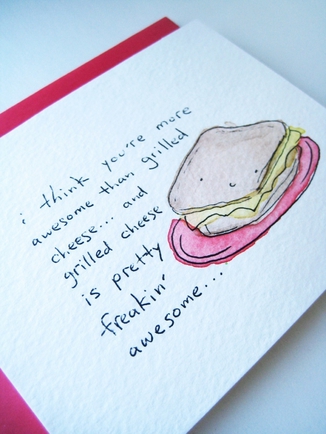 i think you're more
awesome than grilled
cheese... and
grilled cheese
is pretty
freakin'
awesome...